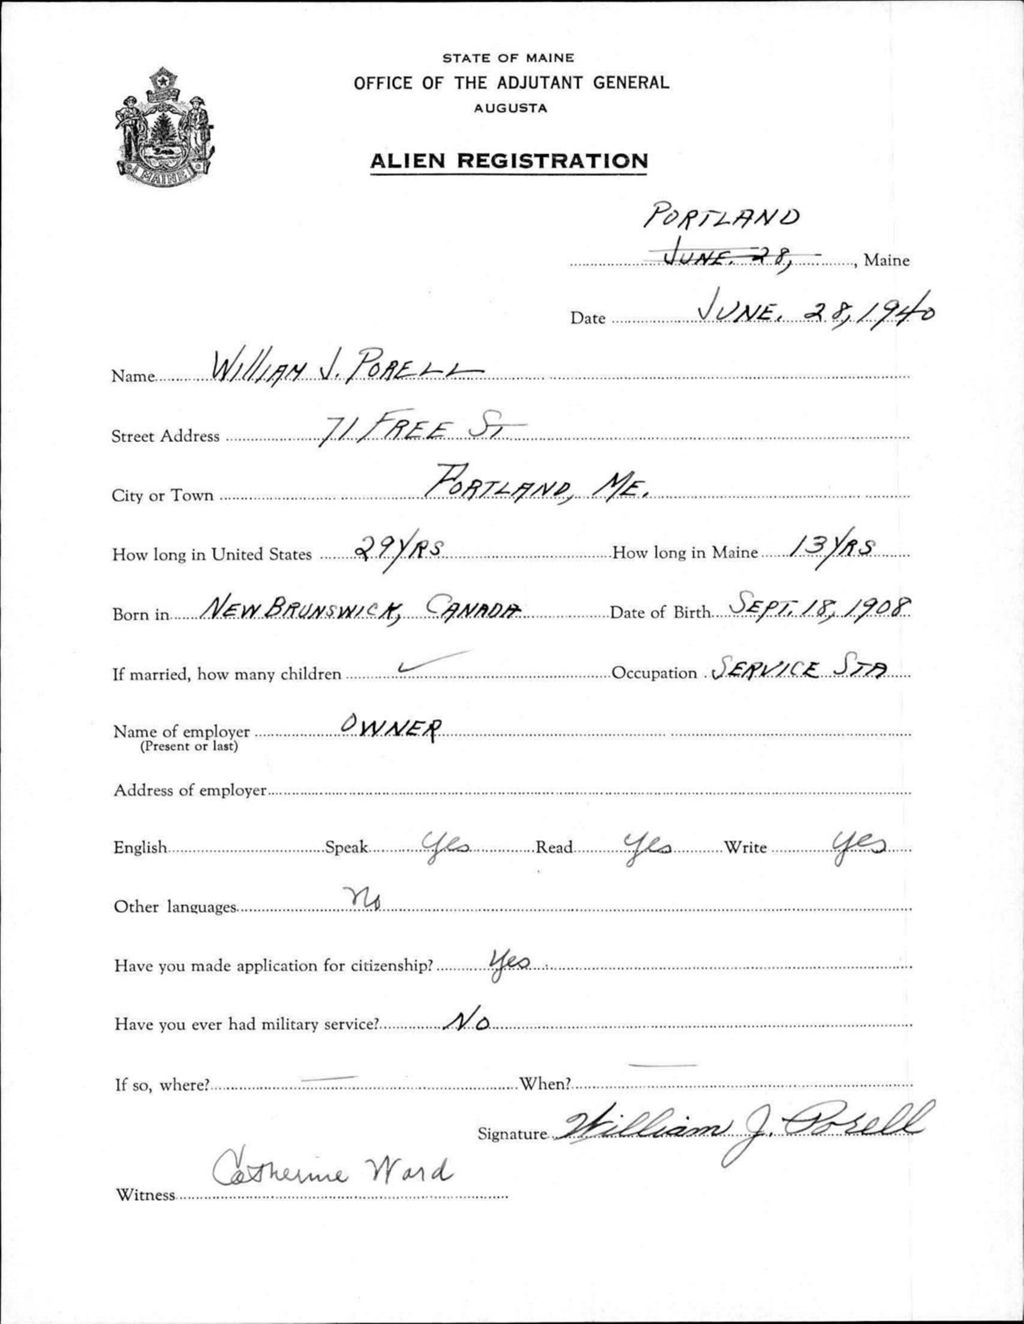 STATE OF MAINE
OFFICE OF THE ADJUTANT GENERAL
AUGUSTA
ALIEN REGISTRATION
MAINE
PORTLAND
JUNE. 28, , Maine
Date JUNE. 28, 1940
Name WILLIAM J. PORELL
Street Address 71 FREE ST
City or Town PORTLAND, ME.
How long in United States 29 YRS How long in Maine 13 YRS
Born in NEW BRUNSWICK, CANADA Date of Birth SEPT. 18, 1908
If married, how many children ✓ Occupation SERVICE STA
Name of employer OWNER
(Present or last)
Address of employer
English Speak Yes Read Yes Write Yes
Other languages No
Have you made application for citizenship? Yes
Have you ever had military service? No
If so, where? — When? —
Signature William J. Porell
Witness Catherine Ward